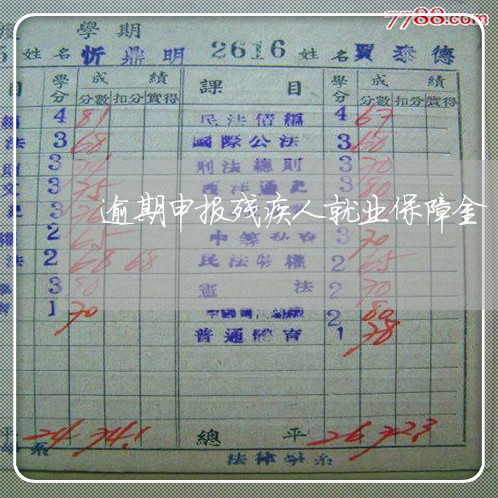 7788.com
學期
姓名 忻鼎明 2616 姓名 賈泰德
目 學分 成績 課目 學分 成績
分數 扣分 實得 分數 扣分 實得
4 81 民法債編 4 67
法 3 68 國際公法 3 60
3 刑法總則 3 70
3 75 3 80
逾期申报残疾人就业保障金
2 65 3 70
法 2 68 68 民法物權 2 65
3 80 憲法 2 70
1 70 2 80
普通體育 1 78
平 24 74.1 總平 26 72.3
系 法律學系